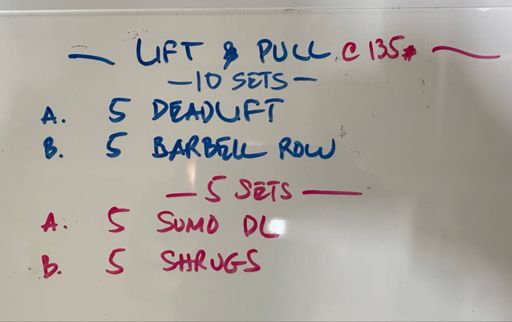 LIFT & PULL @ 135#
-10 SETS-
A. 5 DEADLIFT
B. 5 BARBELL ROW
- 5 SETS -
A. 5 SUMO DL
B. 5 SHRUGS